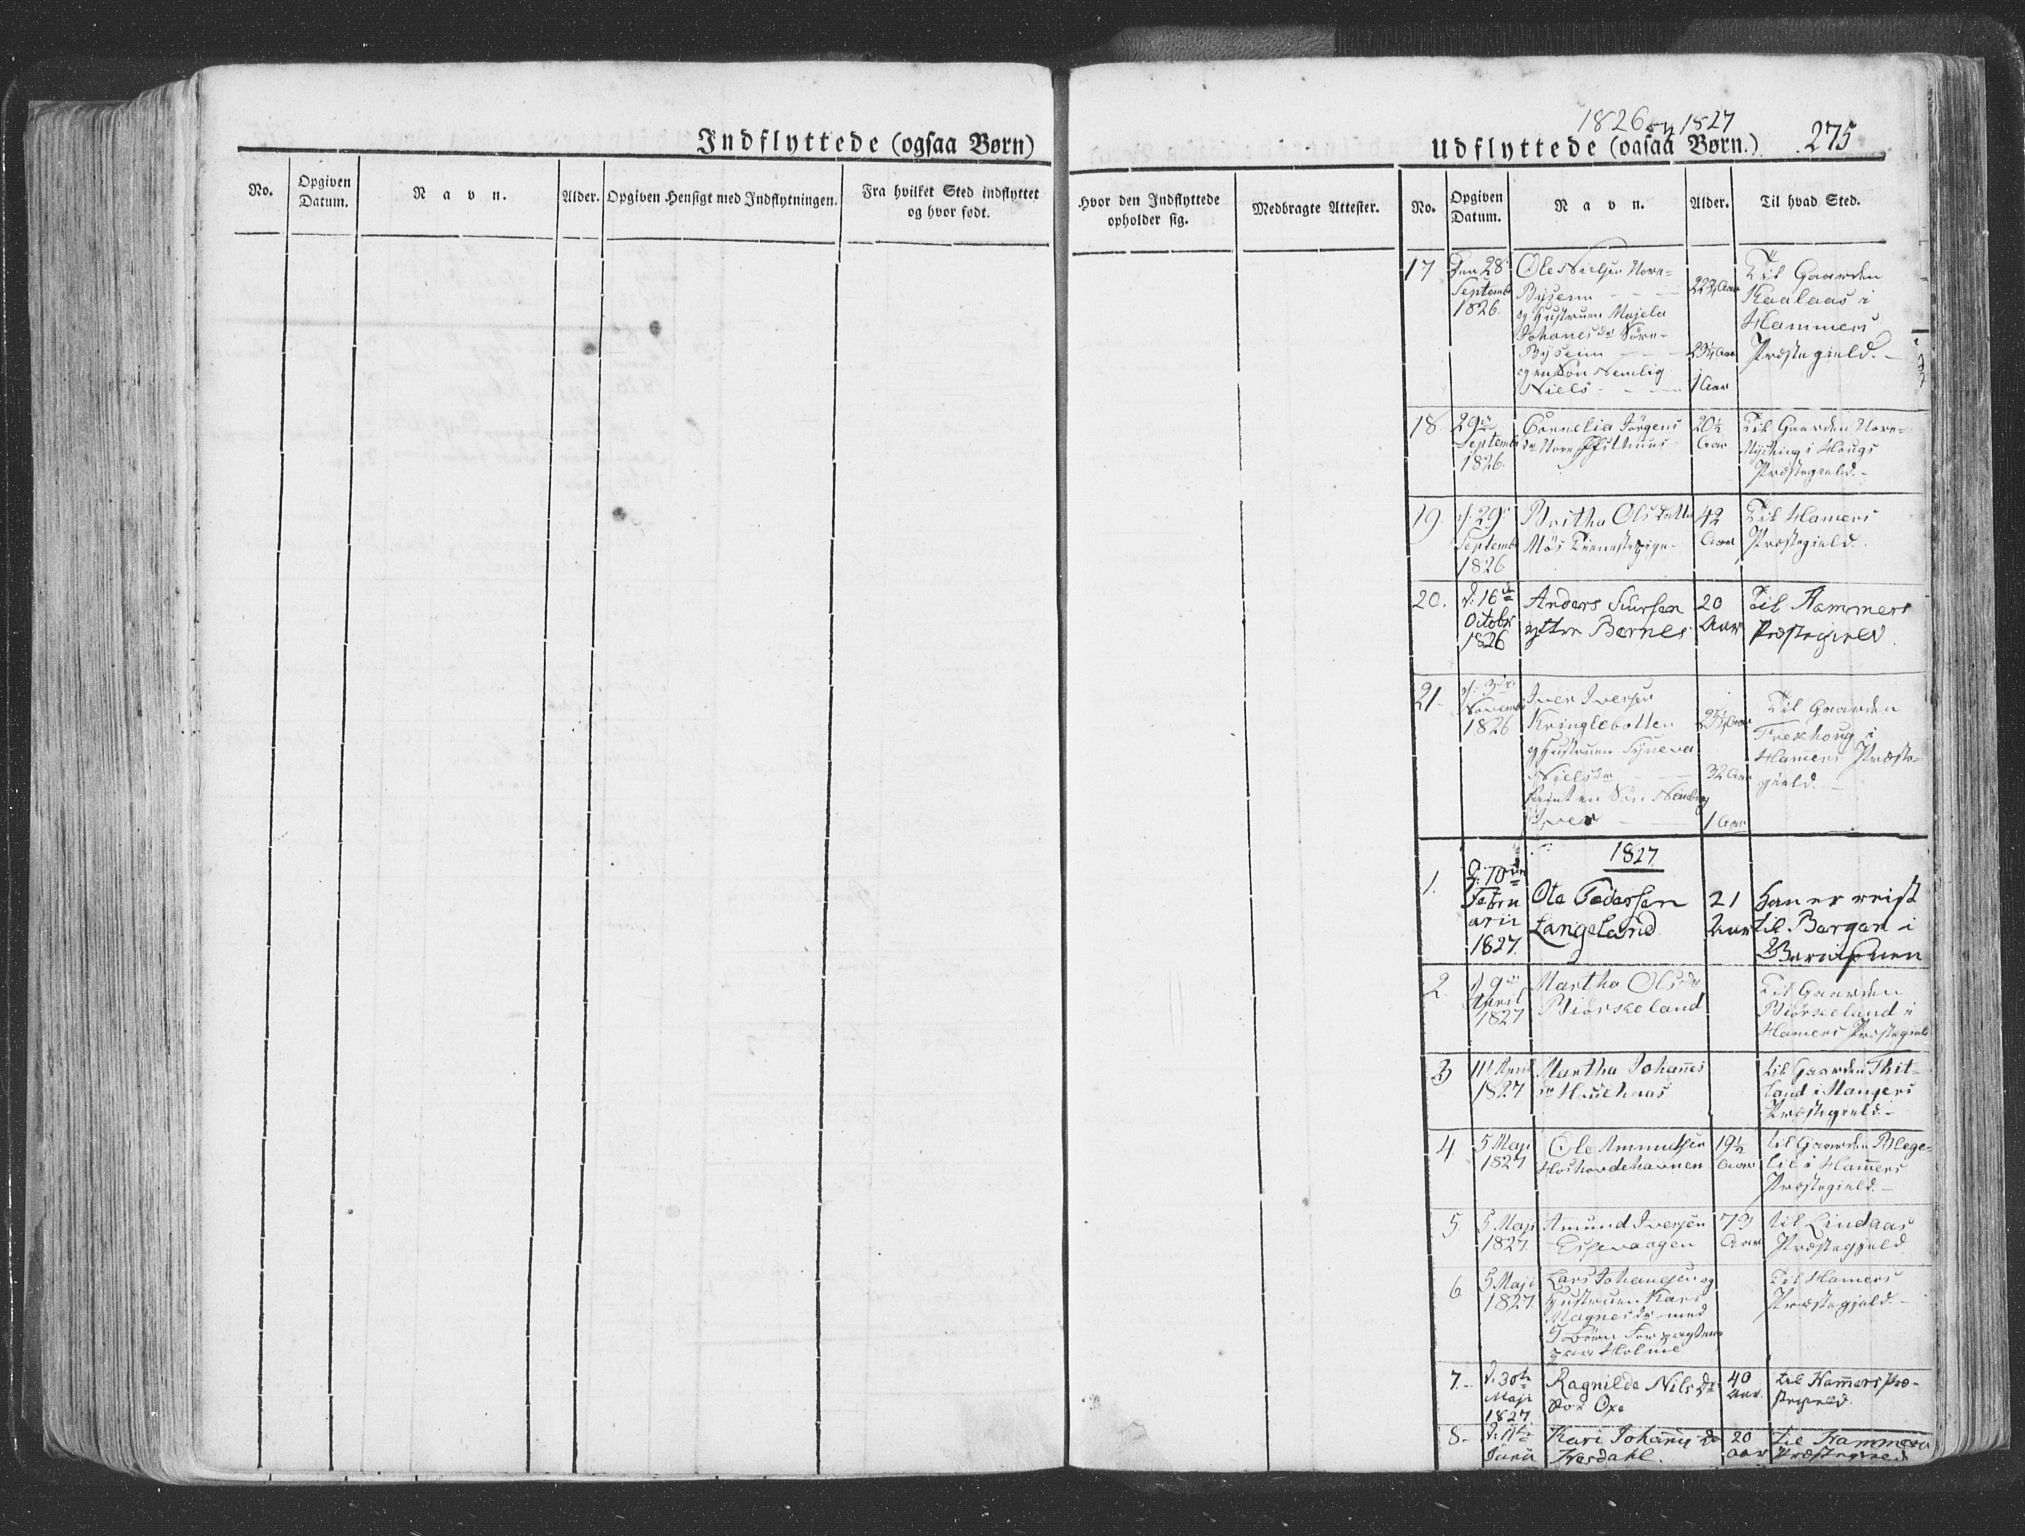 Indflyttede (ogsaa Børn)
No.
Opgiven
Datum.
Navn.
Alder.
Opgiven Hensigt med Indflytningen.
Fra hvilket Sted indflyttet
og hvor født.
1826 og 1827
Udflyttede (ogsaa Børn.)
275
Hvor den Indflyttede
opholder sig.
Medbragte Attester.
No.
Opgiven
Datum.
Navn.
Alder.
Til hvad Sted.
17
Den 28
Septemb
1826.
Ole Nielsen Nore-
Bysem
og Hustruen
Johanesdr Nøre-
Bysem
og en Søn Nemlig
Niels
22¾ Aar
23¼ Aar
1 Aar
Til Gaarden
Kaalaas i
Hammers
Præstegield.
18
29
Septemb
1826.
Cornelia Jørgens
dr Nore
20½
Aar
Til Gaarden Nore-
i Hougs
Præstegield.
19.
d. 29
Septemb
1826
Britha Olsdatter
Møs Tienestepige
42
Aar
Til Hamers
Præstegield.
20.
d. 16
Octobr
1826
Anders
ytre Bernes
20
Aar
Til Hammers
Præstegield.
21.
d. 3
Novemb
1826
Iver Iversen
Kringlebotten
og Hustruen Syneva
Nielsdr
samt en Søn Nemlig
Iver
32 Aar
1 Aar
Til Gaarden
Frekhoug i
Hamers Præste-
gield.
1827
1.
d. 10
Febru
arii
1827.
Ole Pedersen
Langeland
21
Aar
Han er reist
til Bergen i
2.
d 9
April
1827
Martha Olsdr
Biørskeland
Til Gaarden
Biørskeland i
Hamers Præstegield
3
11 April
1827
Martha Johannes
dr
til Gaarden Thit-
land i Mangers
Præstegield.
4
5 Maji
1827
Ole Amundsen
Hoshovdehavnen
19½
Aar
til Gaarden Blege-
lie i Hamers
Præstegield.
5
5 Maji
1827.
Amund Iversen
Espevaagen
73
Aar
til Lindaas
Præstegjeld
6
5 Maji
1827.
Lars Johanesen og
Hustruen Kari
Magnesdr med
Børn
paa Holme
Til Hamers
Præstegjeld.
7.
d. 30te
Maji
1827
Ragnilde Nilsdr
Oxe
40
Aar.
til Hamers Præ-
stegield.
8.
d. 11te
Junii
Kari Johannes dr
20
aar
til Hammers
Præstegield